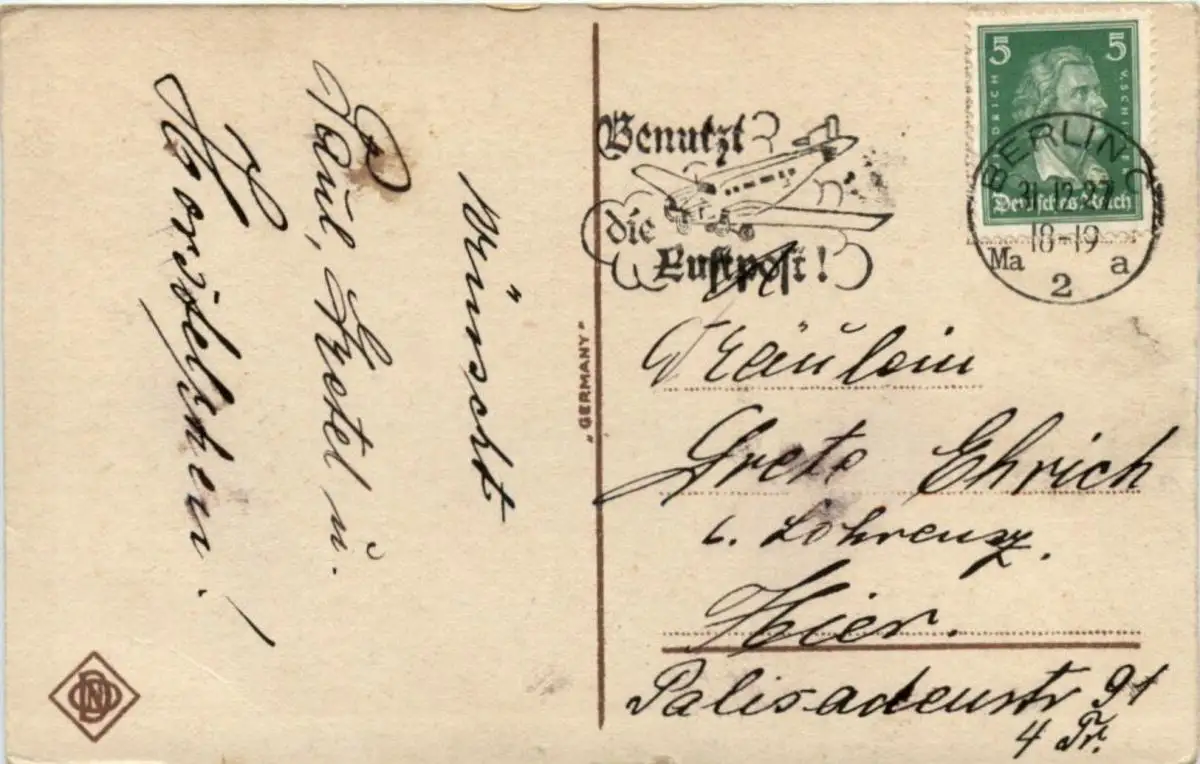 Wünscht
Paul, Gretel u.
Hordölchen!
„GERMANY"
Benutzt
die
Luftpost!
5 5
FRIEDRICH V. SCHILLER
Deutsches Reich
BERLIN C
31.12.27
18-19
Ma 2 a
Fräulein
Grete Ehrich
b. Lohrenz.
Hier.
Palisadenstr 91
4 Tr.